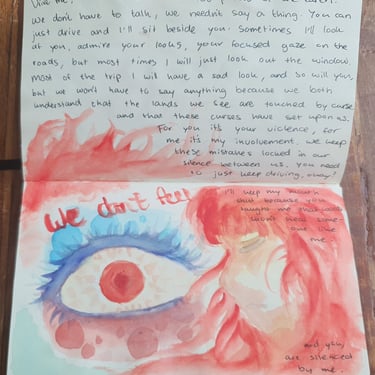 me?
We don't have to talk, we needn't say a thing. You can
just drive and I'll sit beside you. Sometimes I'll look
at you, admire your looks, your focused gaze on the
roads, but most times I will just look out the window.
most of the trip I will have a sad look, and so will you,
but we won't have to say anything because we both
understand that the lands we see are touched by curse
and that these curses have set upon us.
For you it's your violence, for
me it's my involvement. We keep
these mistakes locked in our
silence between us. You need
to just keep driving, okay!
We don't feel
I'll keep my mouth
shut because you
taught me that
won't steal some-
one like
me.
and you,
are silenced
by me.